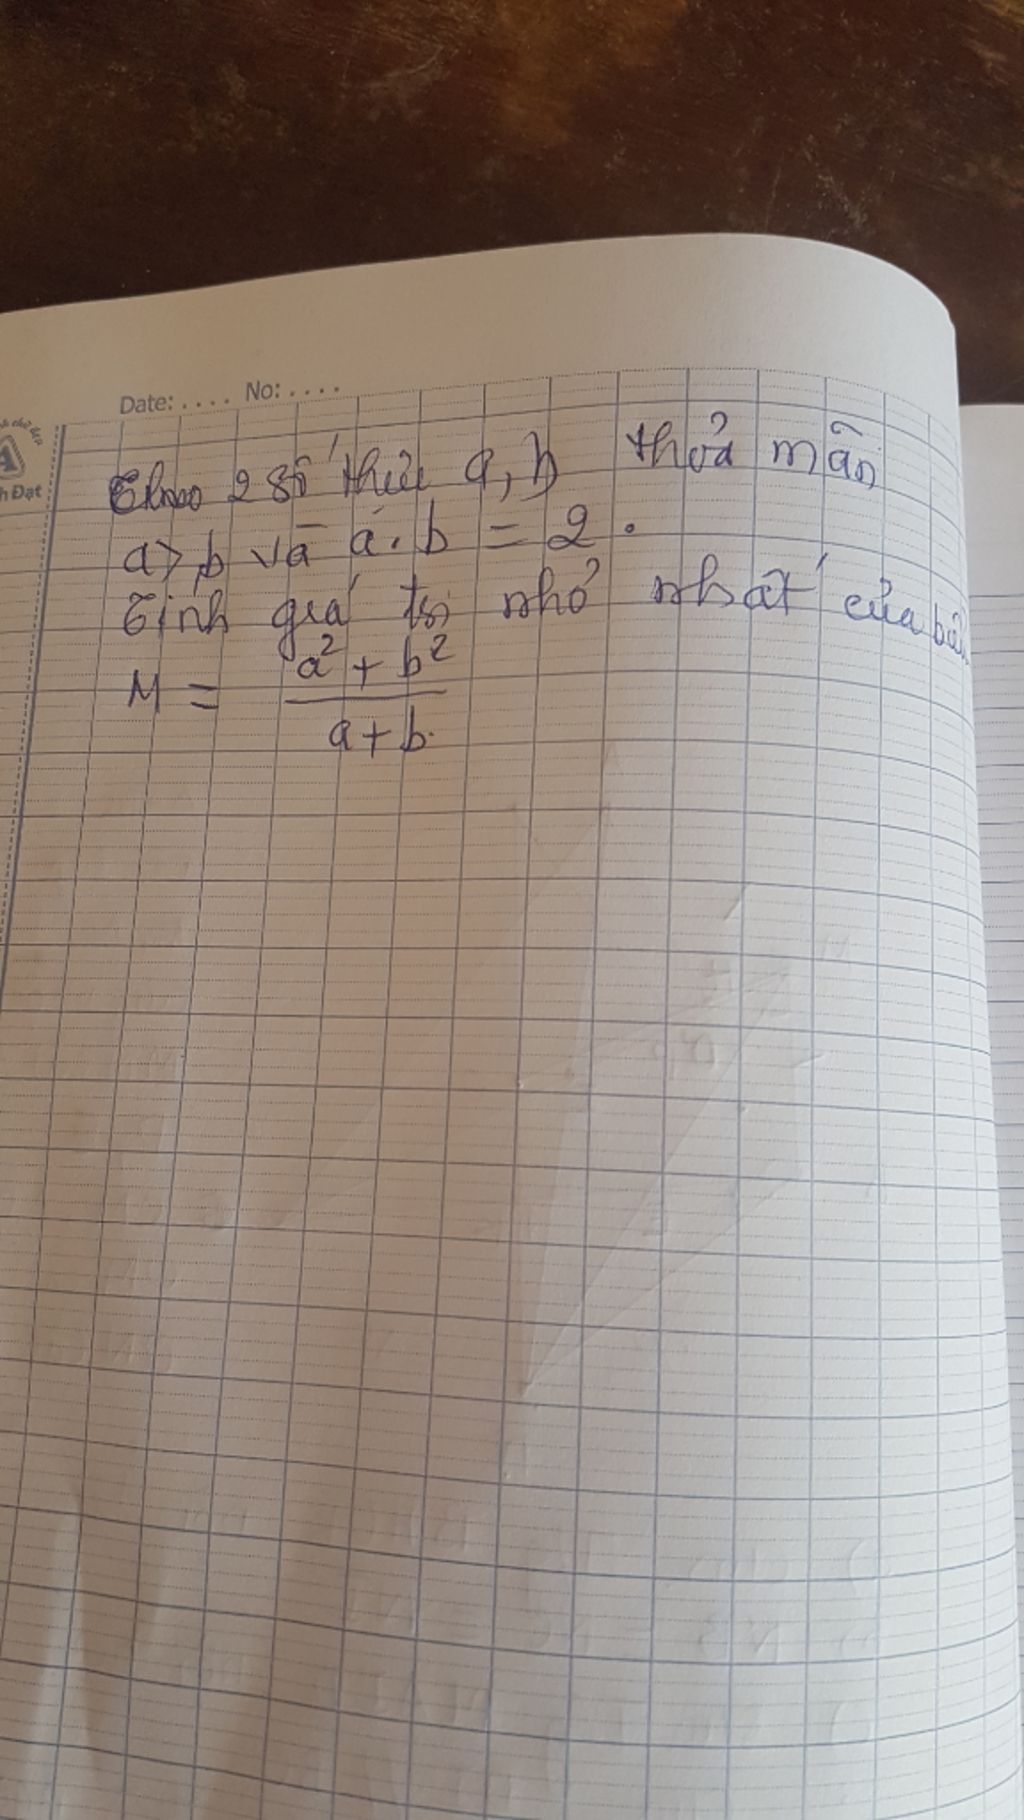 Date: .... No: ....
h Đạt
Cho 2 số thực a, b thoả mãn
a > b và a . b = 2 .
Tính giá trị nhỏ nhất của
M = \frac{a^2 + b^2}{a + b}